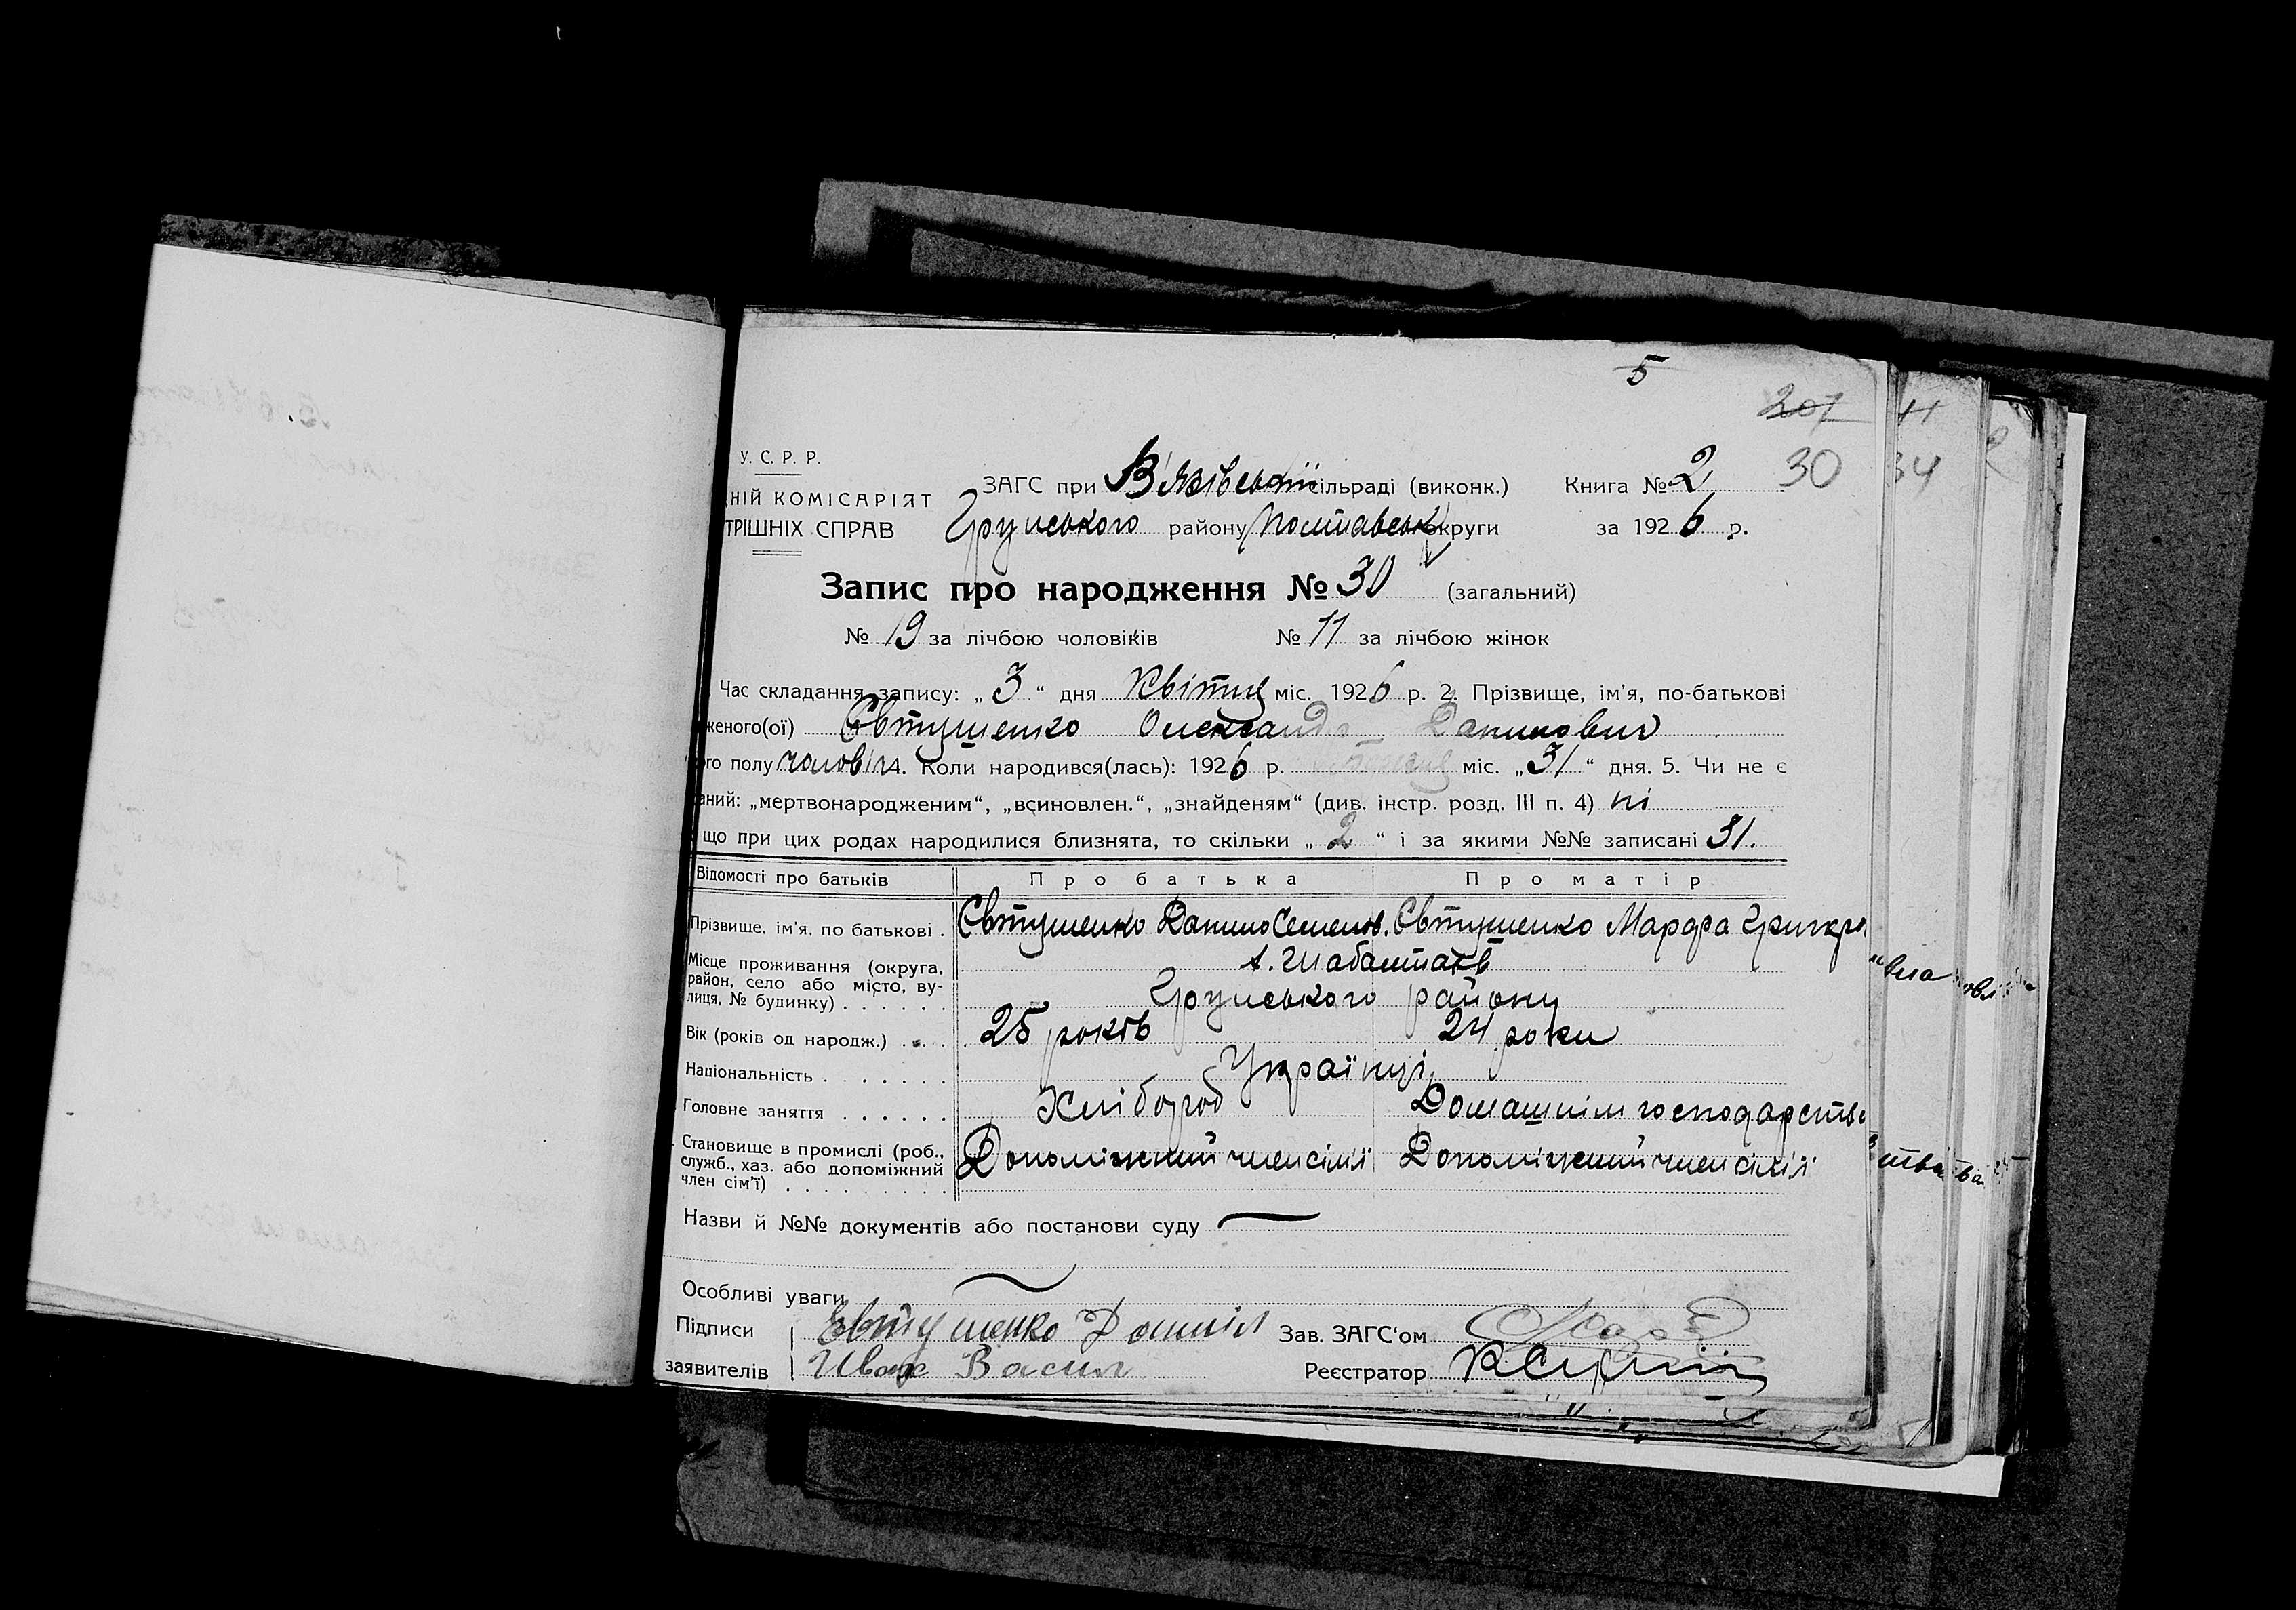 5
207
30
34
У. С. Р. Р.
ЗАГС при В'язівській сільраді (виконк.) Книга № 2
НІЙ КОМІСАРІЯТ
ТРІШНІХ СПРАВ Грунського району Полтавськ округи за 1926 р.
Запис про народження № 30 (загальний)
№ 19 за лічбою чоловіків № 11 за лічбою жінок
Час складання запису: „ 3 “ дня Квітня міс. 1926 р. 2. Прізвище, ім'я, по-батькові
женого(ої) Євтушенко Олександр Данилович
го полу чоловіч 4. Коли народився(лась): 1926 р. міс. „ 31 “ дня. 5. Чи не є
аний: „мертвонародженим“, „всиновлен.“, „знайденям“ (див. інстр. розд. III п. 4) ні
що при цих родах народилися близнята, то скільки „ 2 “ і за якими №№ записані 31.
Відомості про батьків Про батька Про матір
Прізвище, ім'я, по батькові . Євтушенко Данило Семенов. Євтушенко Марфа Григоро
Місце проживання (округа, район, село або місто, вулиця, № будинку) . . . . . . х. Шабалтаїв
Грунського району
Вік (років од народж.) . . . 25 років 24 роки
Національність . . . . . . . Українці
Головне заняття . . . . . . Хлібороб Домашнім господарство
Становище в промислі (роб., служб., хаз. або допоміжний член сім'ї) . . . . . . . . . Допоміжний член сімї Допоміжний член сімї
Назви й №№ документів або постанови суду —
Особливі уваги
Підписи Евтушенко Данніл Зав. ЗАГС'ом
заявителів Ивах Васил Реєстратор